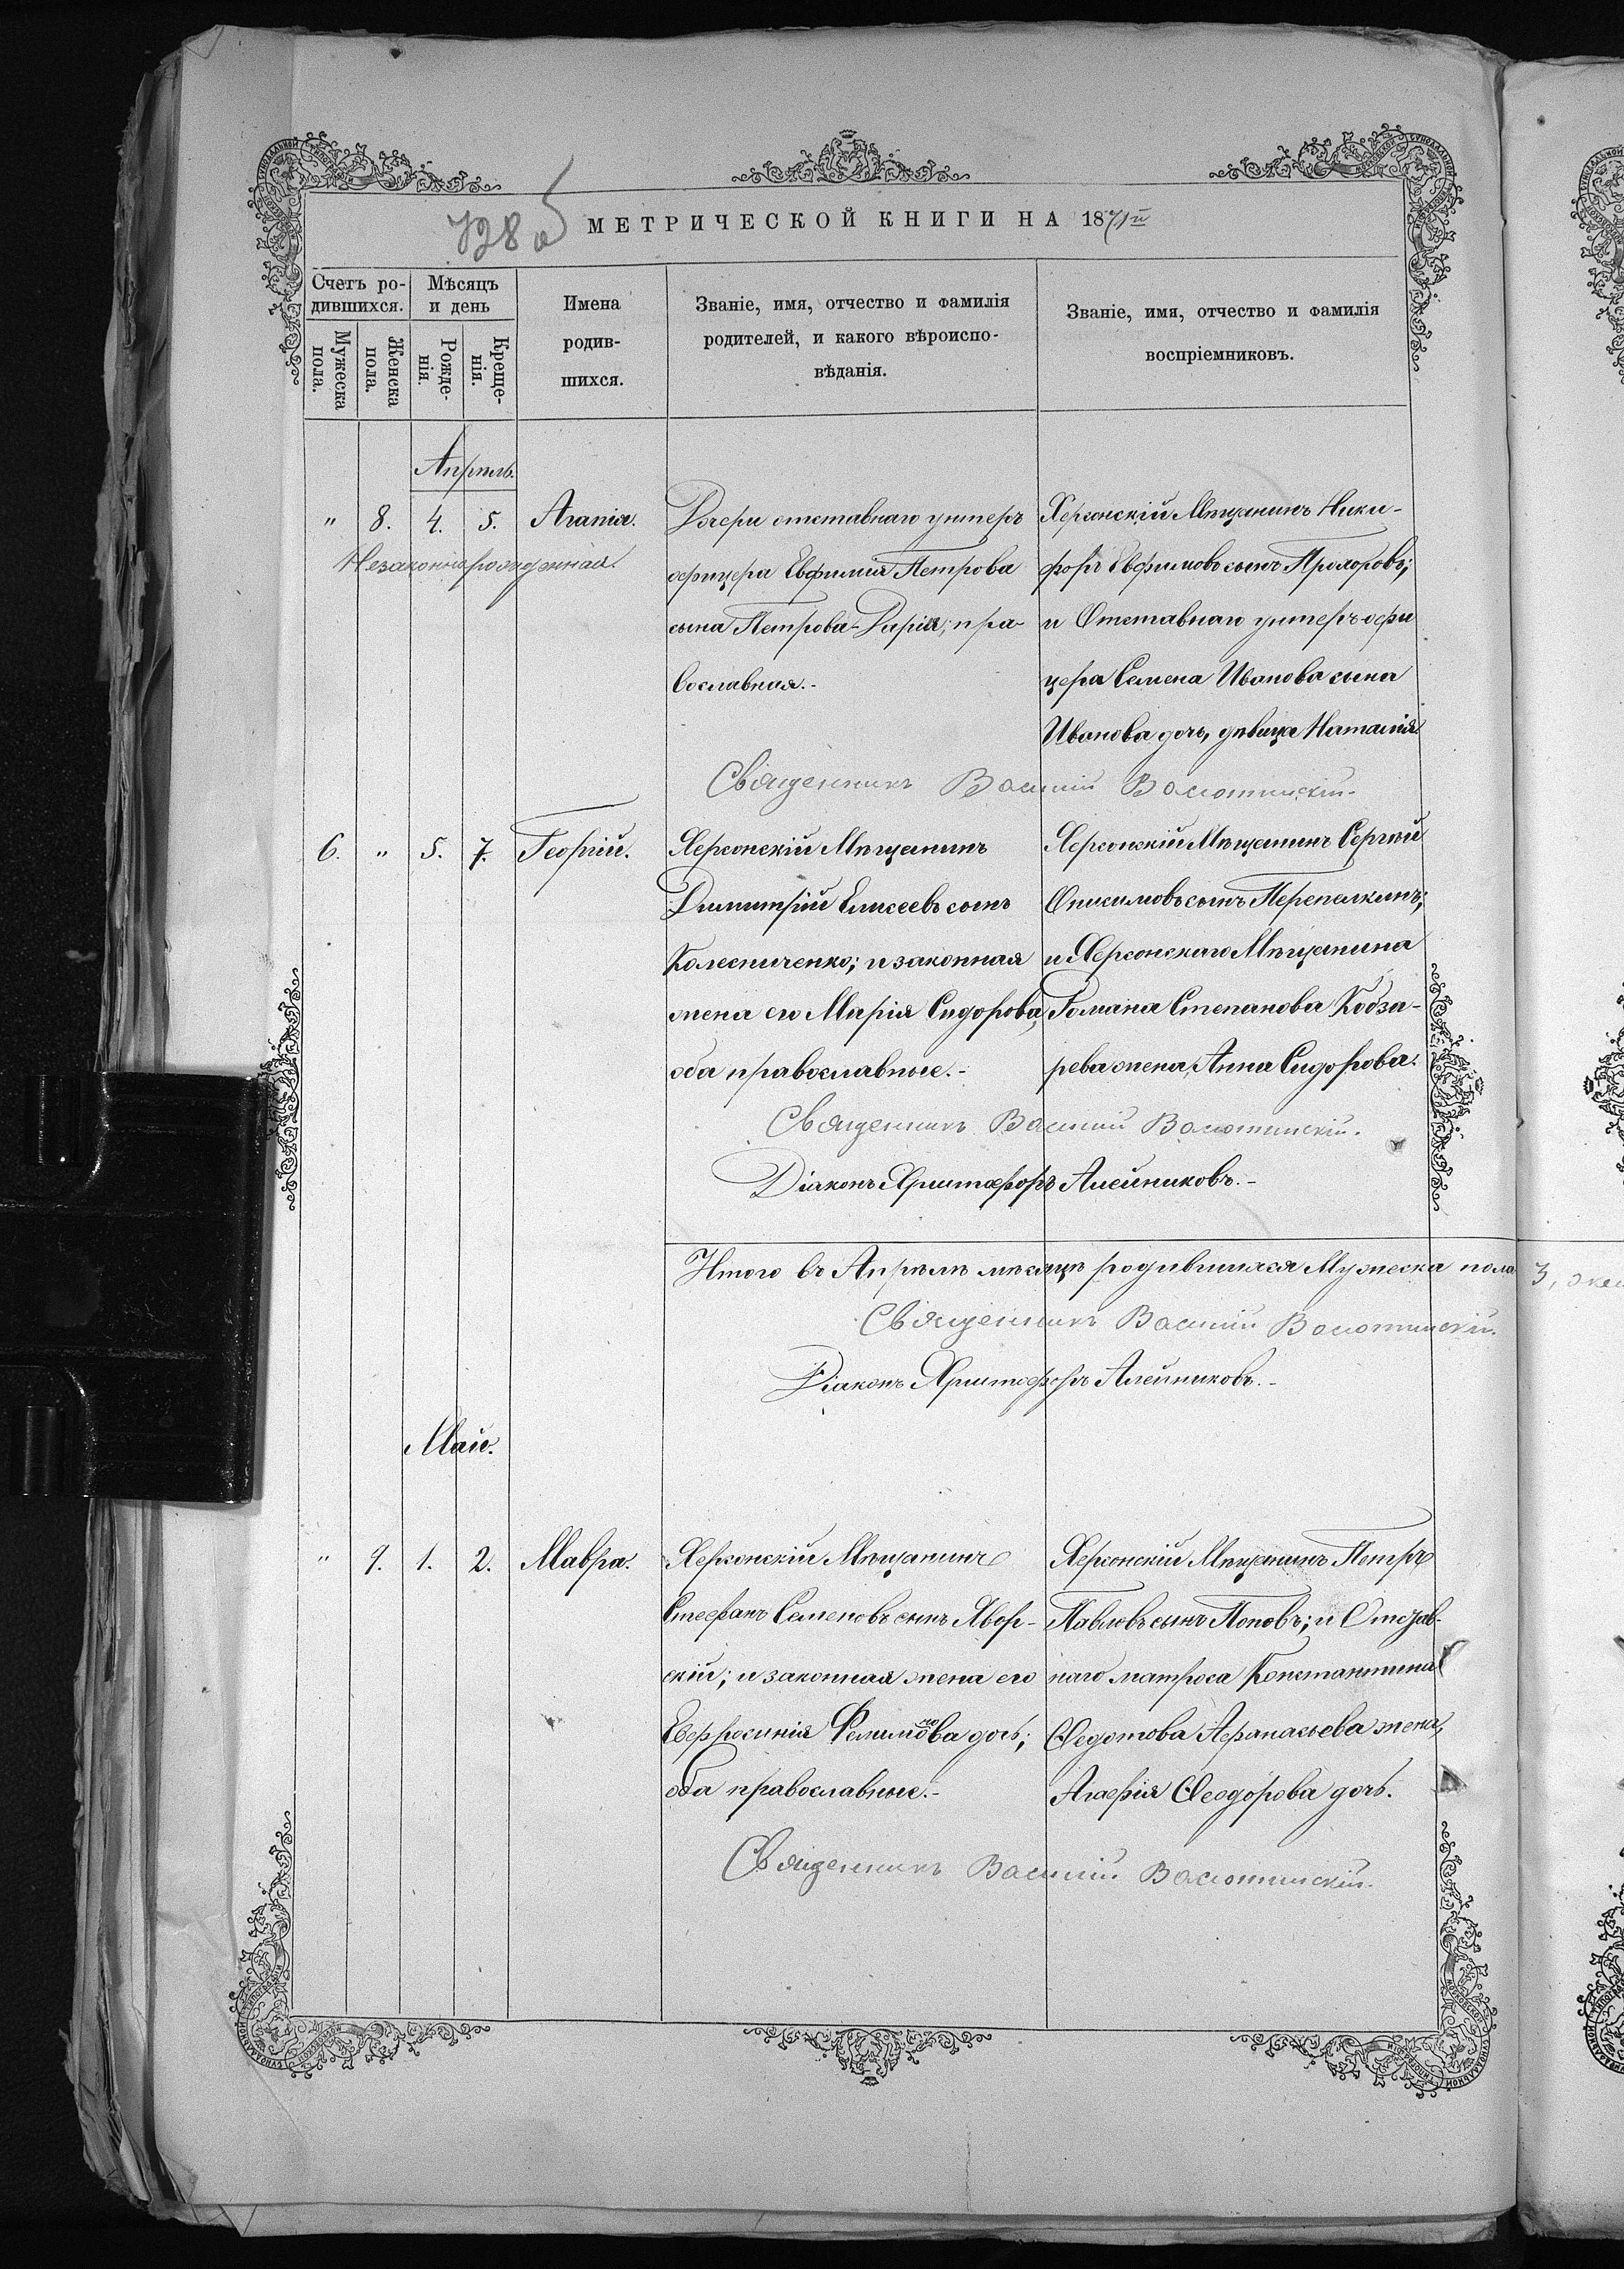 728 об
МЕТРИЧЕСКОЙ КНИГИ НА 1871й
Счетъ ро-
дившихся.
Мужеска
пола.
Женска
пола.
Мѣсяцъ
и день
Рожде-
нія.
Креще-
нія.
Имена
родив-
шихся.
Званіе, имя, отчество и фамилія
родителей, и какого вѣроиспо-
вѣданія.
Званіе, имя, отчество и фамилія
воспріемниковъ.
Апрѣль.
" 8. 4. 5. Агапія.
Незаконнорожденная.
Дочери отставнаго унтеръ
офицера Евфимія Петрова
сына Петрова-Дарія; пра-
вославная.-
Херсонскій Мѣщанинъ Ники-
форъ Евфимовъ сынъ Прохоровъ;
и Отставнаго унтеръ офи
цера Семена Иванова сына
Иванова дочь, дѣвица Наталія
Священникъ Василій
6. " 5. 7. Георгій.
Херсонскій Мѣщанинъ
Димитрій Елисеевъ сынъ
Колесниченко; и законная
жена его Марія Сидорова,
оба православные.-
Херсонскій Мѣщанинъ Сергѣй
Онисимовъ сынъ Перепелкинъ;
и Херсонскаго Мѣщанина
Романа Степанова Кобза-
рева жена, Анна Сидорова.
Священникъ Василій
Діаконъ Христофоръ Алейниковъ.-
Итого въ Апрѣлѣ мѣсяцѣ родившихся Мужеска пола 3, жен
Священникъ Василій
Діаконъ Христофоръ Алейниковъ.-
Май.
" 9. 1. 2. Мавра.
Херсонскій Мѣщанинъ
Стефанъ Семеновъ сынъ Явор-
скій; и законная жена его
Евфросинія Филимонова дочь;
оба православные.-
Херсонскій Мѣщанинъ Петръ
Павловъ сынъ Поповъ; и Отстав-
наго матроса Константина
Ѳедотова Афанасьева жена,
Агафія Ѳеодорова дочь.
Священникъ Василій